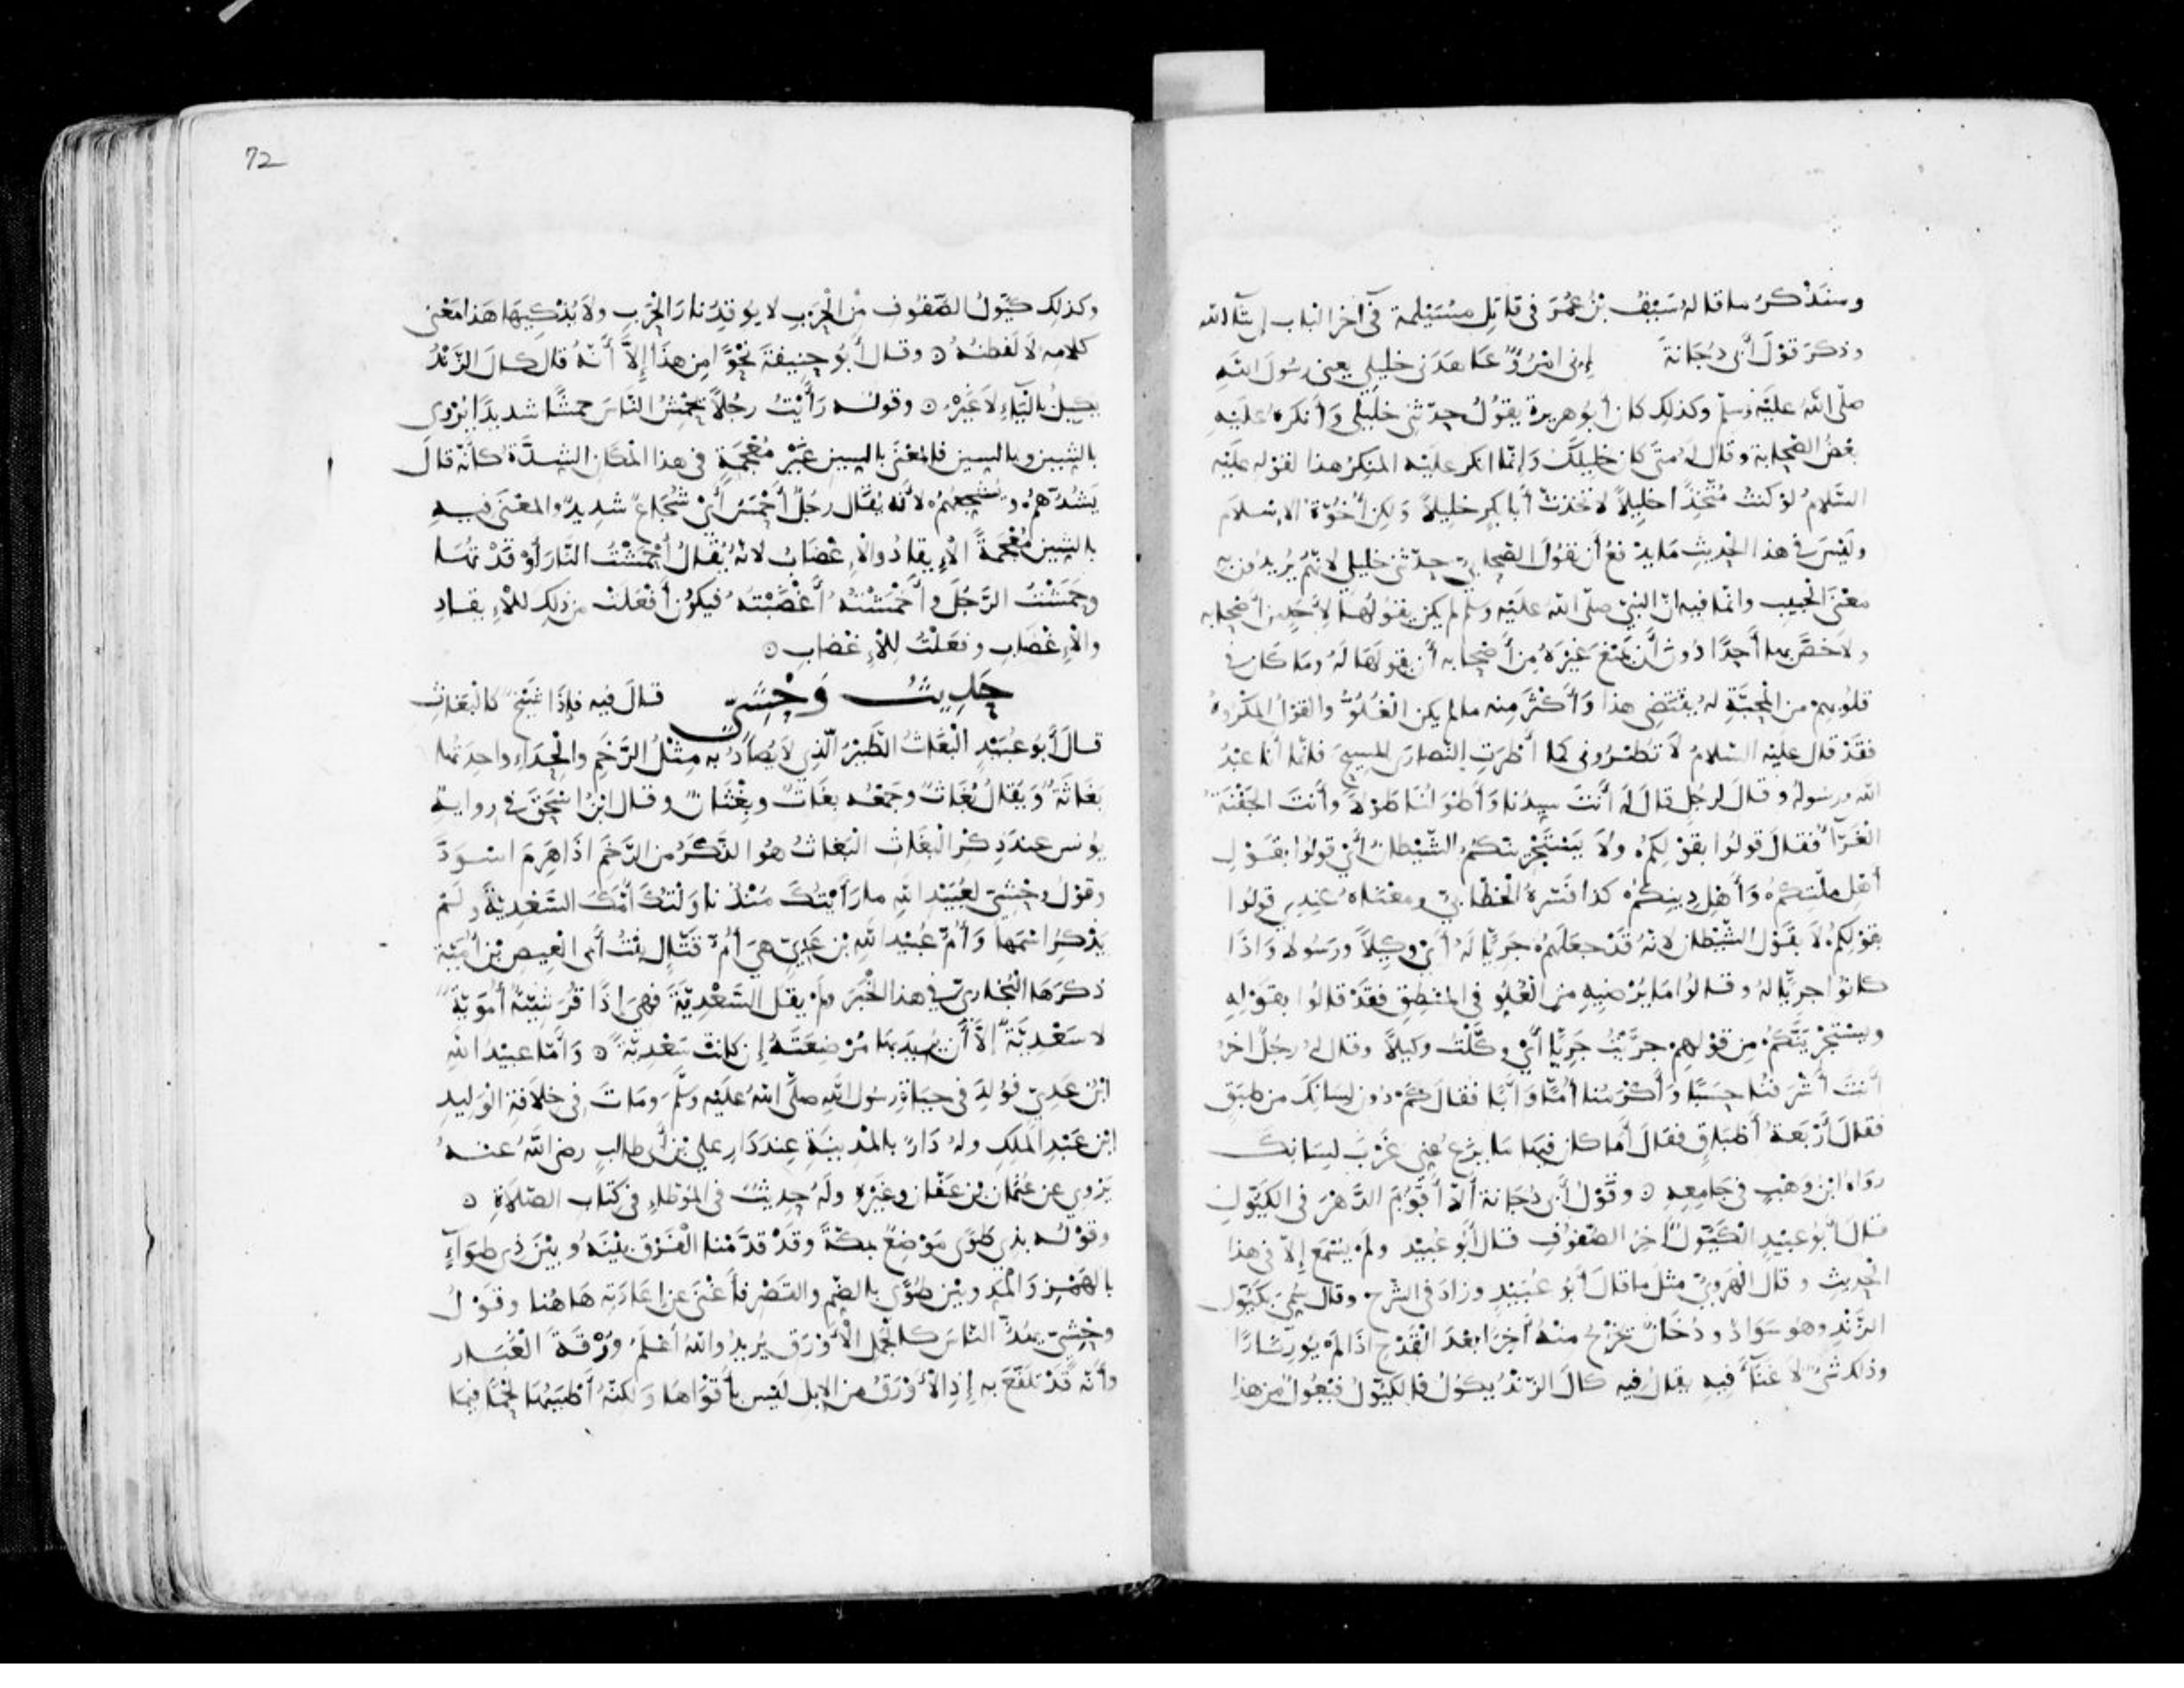 وسنذكر ما قاله سيف بن عمر في قاتل مسيلمة في آخر الباب إن شاء الله
وذكر قول أبي دجانة إني امرؤ عاهدني خليلي يعني رسول الله
صلى الله عليه وسلم وكذلك كان أبو هريرة يقول حدثني خليلي وأنكره عليه
بعض الصحابة وقال له متى كان خليلك وإنما أنكر عليه المنكر هذا لقوله عليه
السلام لو كنت متخذا خليلا لاتخذت أبا بكر خليلا ولكن أخوة الإسلام
وليس في هذا الحديث ما يدفع أن يقول الصحابي حدثني خليلي لأنهم يريدون به
معنى الحبيب وإنما فيه أن النبي صلى الله عليه وسلم لم يكن يقولها لأحد من أصحابه
ولا خص بها أحدا دون أن يمنع غيره من أصحابه أن يقولها له وما كان في
قلوبهم من المحبة له يقتضي هذا وأكثر منه ما لم يكن الغلو والقول المكروه
فقد قال عليه السلام لا تطروني كما أطرت النصارى المسيح فإنما أنا عبد
الله ورسوله وقال لرجل قال له أنت سيدنا وأطولنا طولا وأنت الجفنة
الغراء فقال قولوا بقولكم ولا يستجرينكم الشيطان أي قولوا بقول
أهل ملتكم وأهل دينكم كذا فسره الخطابي ومعناه عندي قولوا
بقولكم لا بقول الشيطان لأنه قد جعلهم جريا له أي وكيلا ورسولا وإذا
كانوا جريا له وقالوا ما يرضيه من الغلو في المنطق فقد قالوا بقوله
ويستجرينكم من قولهم جريت جريا أي وكلت وكيلا وقال له رجل آخر
أنت أشرفنا حسبا وأكرمنا أما وأبا فقال كم دون لسانك من طبق
فقال أربعة أطباق فقال أما كان فيها ما يزع عني غرب لسانك
رواه ابن وهب في جامعه ۝ وقول أبي دجانة ألا أقوم الدهر في الكيول
قال أبو عبيد الكيول آخر الصفوف قال أبو عبيد ولم يسمع إلا في هذا
الحديث وقال الهروي مثل ما قال أبو عبيد وزاد في الشرح وقال سمي بكيول
الزند وهو سواد ودخان يخرج منه آخرا بعد القدح إذا لم يور نارا
وذلك شيء لا غناء فيه يقال فيه كال الزند يكول فالكيول فيعول من هذا
72
وكذلك كيول الصفوف من الحرب لا يوقد نار الحرب ولا يذكيها هذا معنى
كلامه لا لفظه ۝ وقال أبو حنيفة نحوا من هذا إلا أنه قال كال الزند
يكيل بالياء لا غير ۝ وقوله رأيت رجلا يحمش الناس حمشا شديدا يروى
بالشين وبالسين فالمعنى بالسين غير معجمة في هذا المكان الشدة كأنه قال
يشدهم ويشجعهم لأنه يقال رجل أحمس أي شجاع شديد والمعنى فيه
بالشين معجمة الإيقاد والإغضاب لأنه يقال أحمشت النار أوقدتها
وحمشت الرجل وأحمشته أغضبته فيكون أفعلت من ذلك للإيقاد
والإغضاب وفعلت للإغضاب ۝
حديث وحشي قال فيه فإذا شيخ كالبغاث
قال أبو عبيد البغاث الطير الذي لا يصاد به مثل الرخم والحداء واحدتها
بغاثة ويقال بغاث وجمعه بغاث وبغثان وقال ابن إسحق في رواية
يونس عند ذكر البغاث البغاث هو الذكر من الرخم إذا هرم اسود
وقول وحشي لعبيد الله ما رأيتك منذ ناولتك أمك السعدية ولم
يذكر اسمها وأم عبيد الله بن عدي هي أم قتال بنت أبي العيص بن أمية
ذكرها البخاري في هذا الخبر ولم يقل السعدية فهي إذا قرشية أموية
لا سعدية إلا أن يريد بها مرضعته إن كانت سعدية ۝ وأما عبيد الله
ابن عدي فولد في حياة رسول الله صلى الله عليه وسلم ومات في خلافة الوليد
ابن عبد الملك وله دار بالمدينة عند دار علي بن أبي طالب رضي الله عنه
يروي عن عثمان بن عفان وغيره وله حديث في الموطإ في كتاب الصلاة ۝
وقوله بذي طوى موضع بمكة وقد قدمنا الفرق بينه وبين ذي طواء
بالهمز والمد وبين طوى بالضم والقصر فأغنى عن إعادته هاهنا وقول
وحشي يهد الناس كالجمل الأورق يريد والله أعلم ورقة الغبار
وأنه قد تلفع به إذ الأورق من الإبل ليس بأقواها ولكنه أطيبها لحما فيما